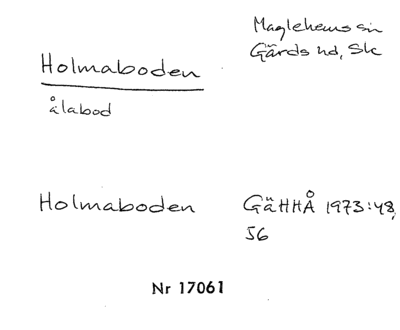 Maglehems sn
Gärds hd, Sk
Holmaboden
ålabod
Holmaboden GäHHÅ 1973:48,
56
Nr 17061